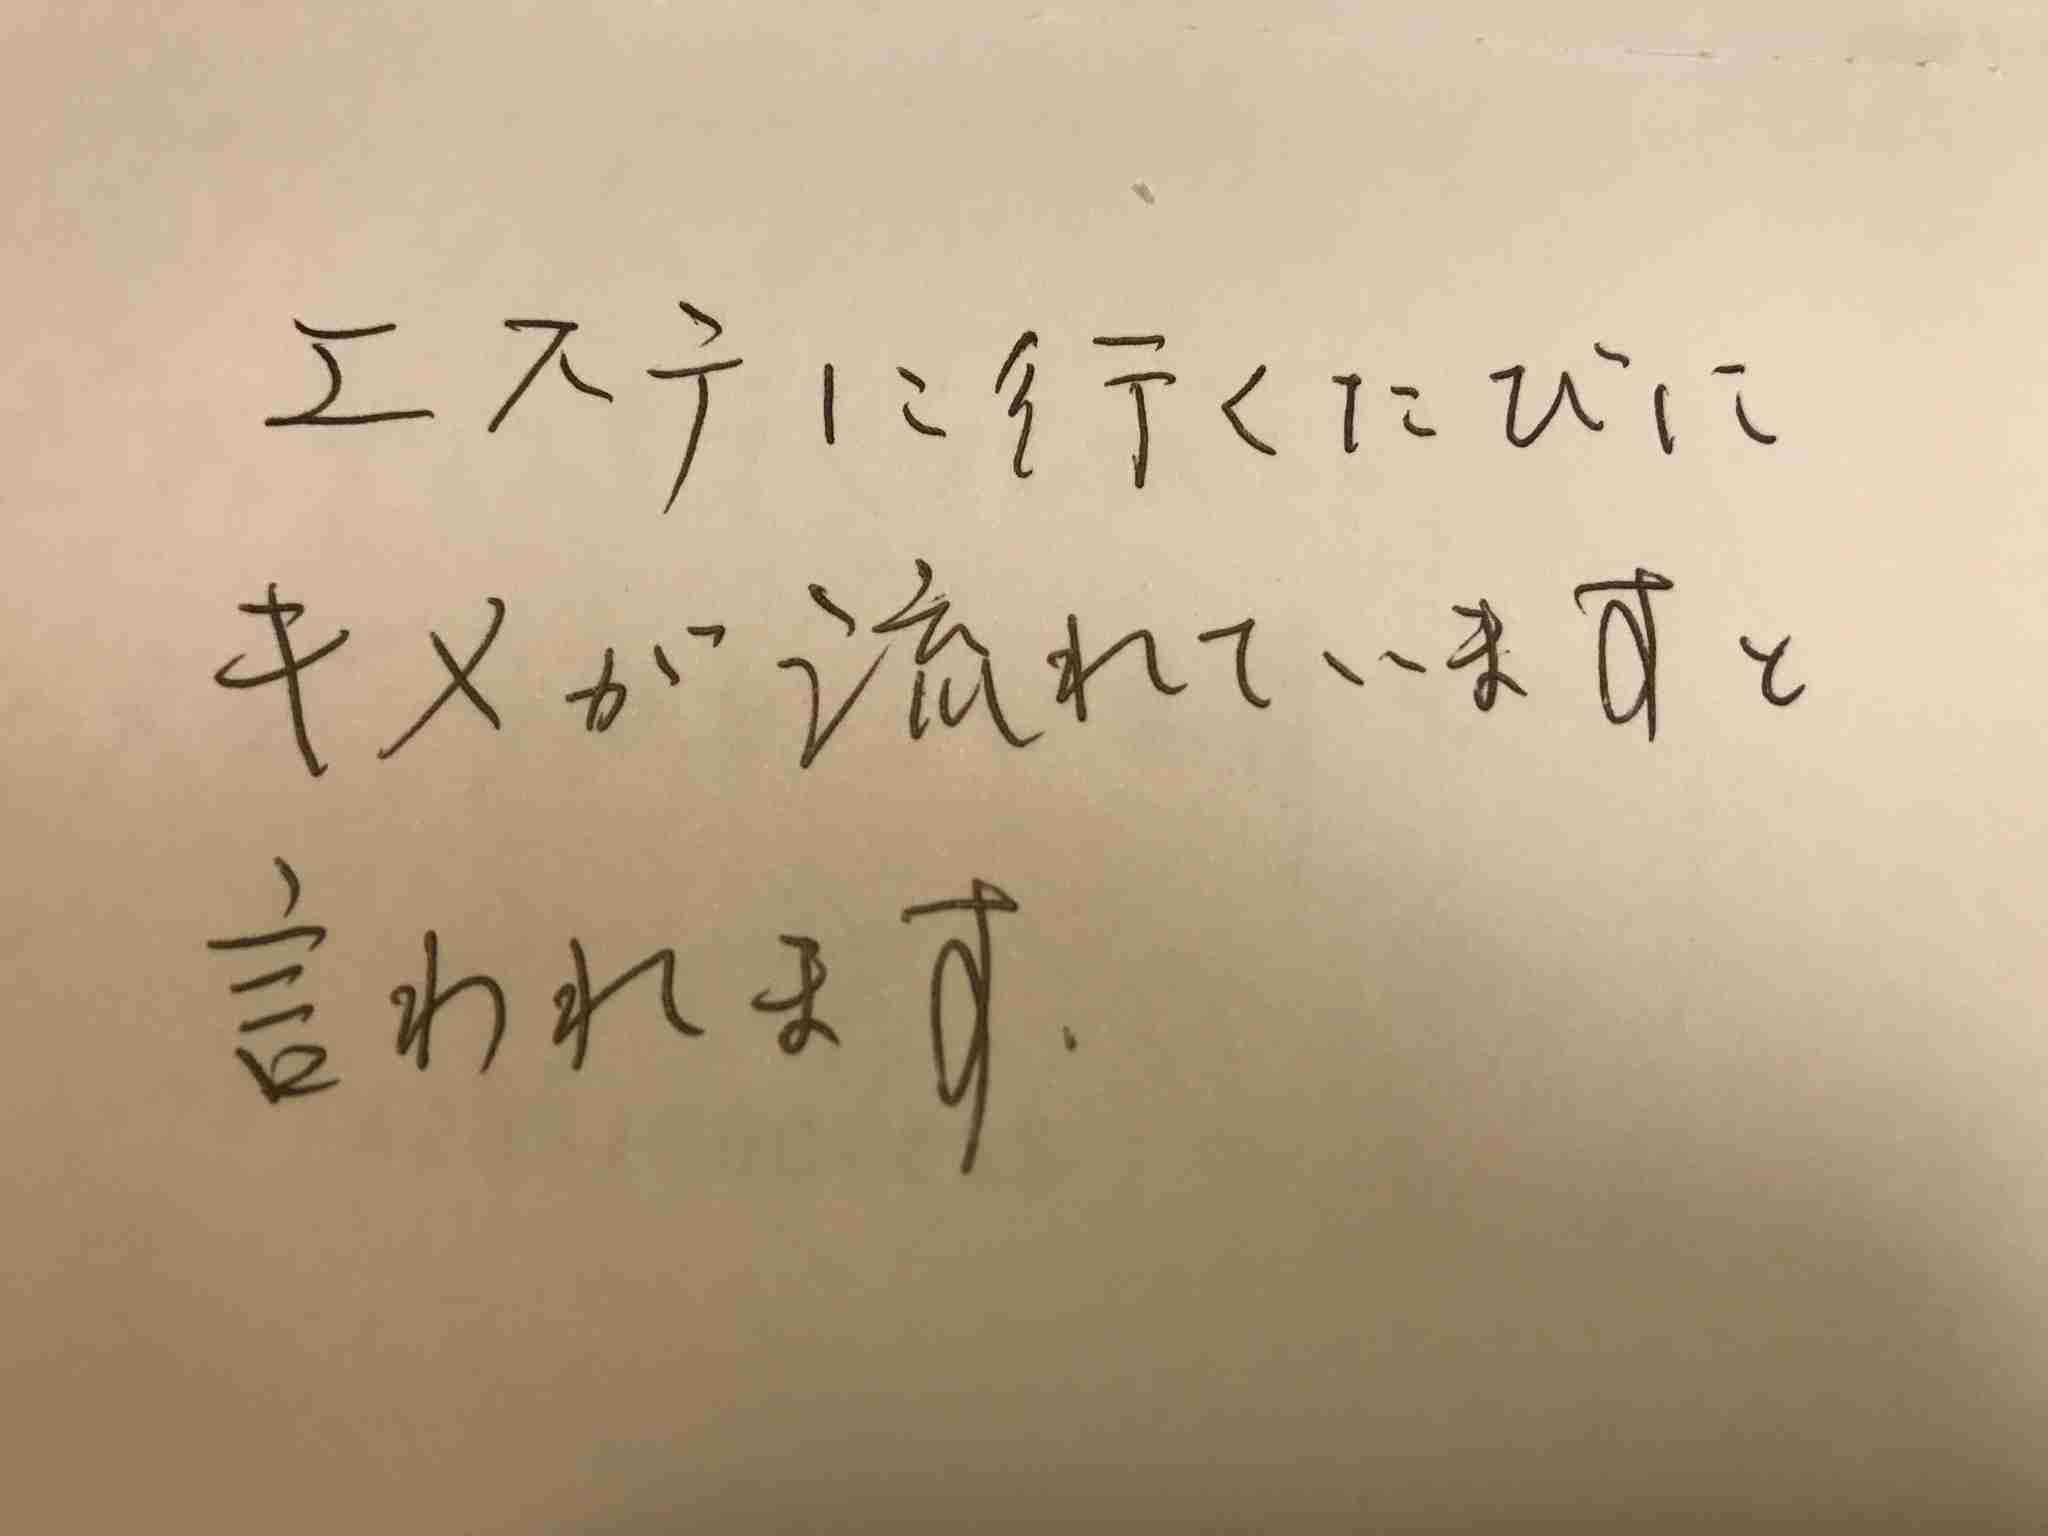 エステに行くたびに
キメが流れていますと
言われます.